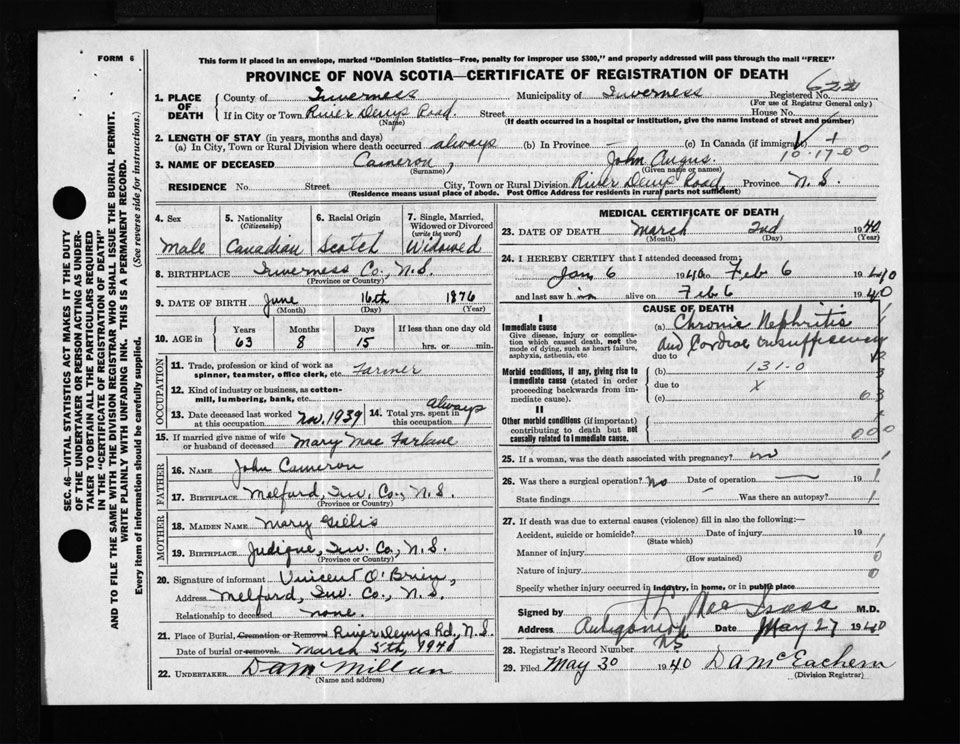 FORM 6
This form if placed in an envelope, marked "Dominion Statistics—Free, penalty for improper use $300," and properly addressed will pass through the mail "FREE"
PROVINCE OF NOVA SCOTIA—CERTIFICATE OF REGISTRATION OF DEATH
622
1. PLACE OF DEATH
County of Inverness Municipality of Inverness Registered No.
(For use of Registrar General only)
If in City or Town River Denys Road. Street House No.
(Name) (If death occurred in a hospital or institution, give the name instead of street and number)
2. LENGTH OF STAY (in years, months and days)
(a) In City, Town or Rural Division where death occurred always (b) In Province — (c) In Canada (if immigrant)
10-17-00
3. NAME OF DECEASED Cameron, John Angus.
(Surname) (Given name or names)
RESIDENCE No. Street City, Town or Rural Division River Denys Road, Province N.S.
(Residence means usual place of abode. Post Office Address for residents in rural parts not sufficient)
4. Sex Male
5. Nationality (Citizenship) Canadian
6. Racial Origin Scotch
7. Single, Married, Widowed or Divorced (write the word) Widowed
8. BIRTHPLACE Inverness Co., N.S.
(Province or Country)
9. DATE OF BIRTH June 16th 1876
(Month) (Day) (Year)
10. AGE in Years Months Days If less than one day old
63 8 15 hrs. or min.
OCCUPATION
11. Trade, profession or kind of work as spinner, teamster, office clerk, etc. Farmer
12. Kind of industry or business, as cotton-mill, lumbering, bank, etc.
13. Date deceased last worked at this occupation Nov. 1939
14. Total yrs. spent in this occupation always
15. If married give name of wife or husband of deceased Mary Mac Farlane
FATHER
16. NAME John Cameron
17. BIRTHPLACE Melford, Inv. Co., N.S.
(Province or Country)
MOTHER
18. MAIDEN NAME Mary Gillis
19. BIRTHPLACE Judique, Inv. Co., N.S.
(Province or Country)
20. Signature of informant Vincent O'Brien,
Address Melford, Inv. Co., N.S.
Relationship to deceased none.
21. Place of Burial, Cremation or Removal River Denys Rd., N.S.
Date of burial or removal March 5th, 1940
22. UNDERTAKER D A McMillan
(Name and address)
MEDICAL CERTIFICATE OF DEATH
23. DATE OF DEATH March 2nd 1940
(Month) (Day) (Year)
24. I HEREBY CERTIFY that I attended deceased from:
Jan 6 1940 to Feb 6 1940
and last saw h im alive on Feb 6 1940
CAUSE OF DEATH
I
Immediate cause
Give disease, injury or complication which caused death, not the mode of dying, such as heart failure, asphyxia, asthenia, etc
(a) Chronic Nephritis
and Cardiac insufficiency
due to
Morbid conditions, if any, giving rise to immediate cause (stated in order proceeding backwards from immediate cause).
(b) 131-0
due to x
(c) 63
II
Other morbid conditions (if important) contributing to death but not causally related to immediate cause.
000
25. If a woman, was the death associated with pregnancy? no
26. Was there a surgical operation? no Date of operation — 19
State findings Was there an autopsy?
27. If death was due to external causes (violence) fill in also the following:—
Accident, suicide or homicide? Date of injury 19
(State which)
Manner of injury
(How sustained)
Nature of injury
Specify whether injury occurred in industry, in home, or in public place
Signed by Mac Isaac M.D.
Address Antigonish NS Date May 27 1940
28. Registrar's Record Number
29. Filed May 30 1940 D A McEachern
(Division Registrar)
SEC. 46—VITAL STATISTICS ACT MAKES IT THE DUTY
OF THE UNDERTAKER OR PERSON ACTING AS UNDER-
TAKER TO OBTAIN ALL THE PARTICULARS REQUIRED
IN THE "CERTIFICATE OF REGISTRATION OF DEATH"
AND TO FILE THE SAME WITH THE DIVISION REGISTRAR WHO SHALL ISSUE THE BURIAL PERMIT.
WRITE PLAINLY WITH UNFADING INK. THIS IS A PERMANENT RECORD.
Every item of information should be carefully supplied. (See reverse side for instructions.)